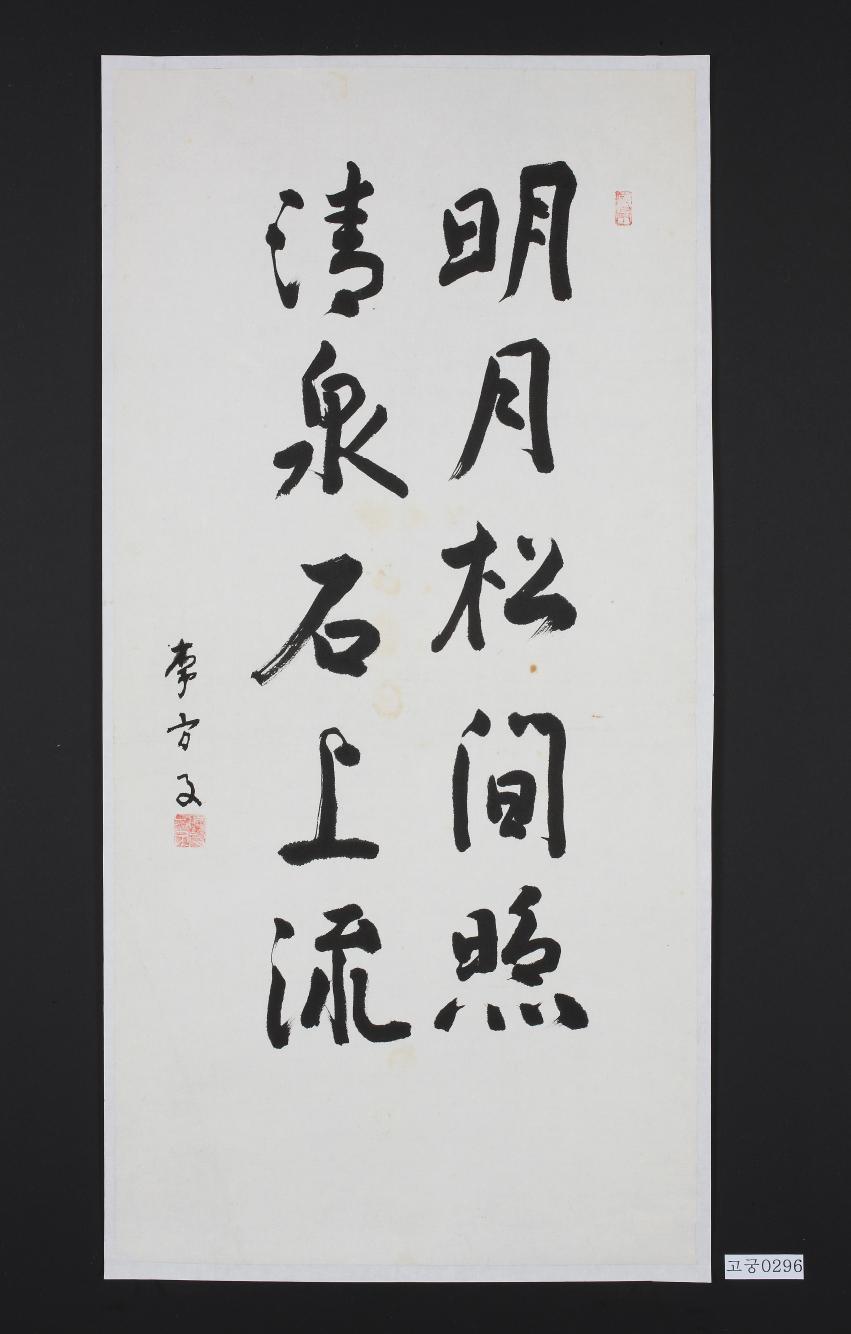 明月松間照
清泉石上流
李方子
고궁0296